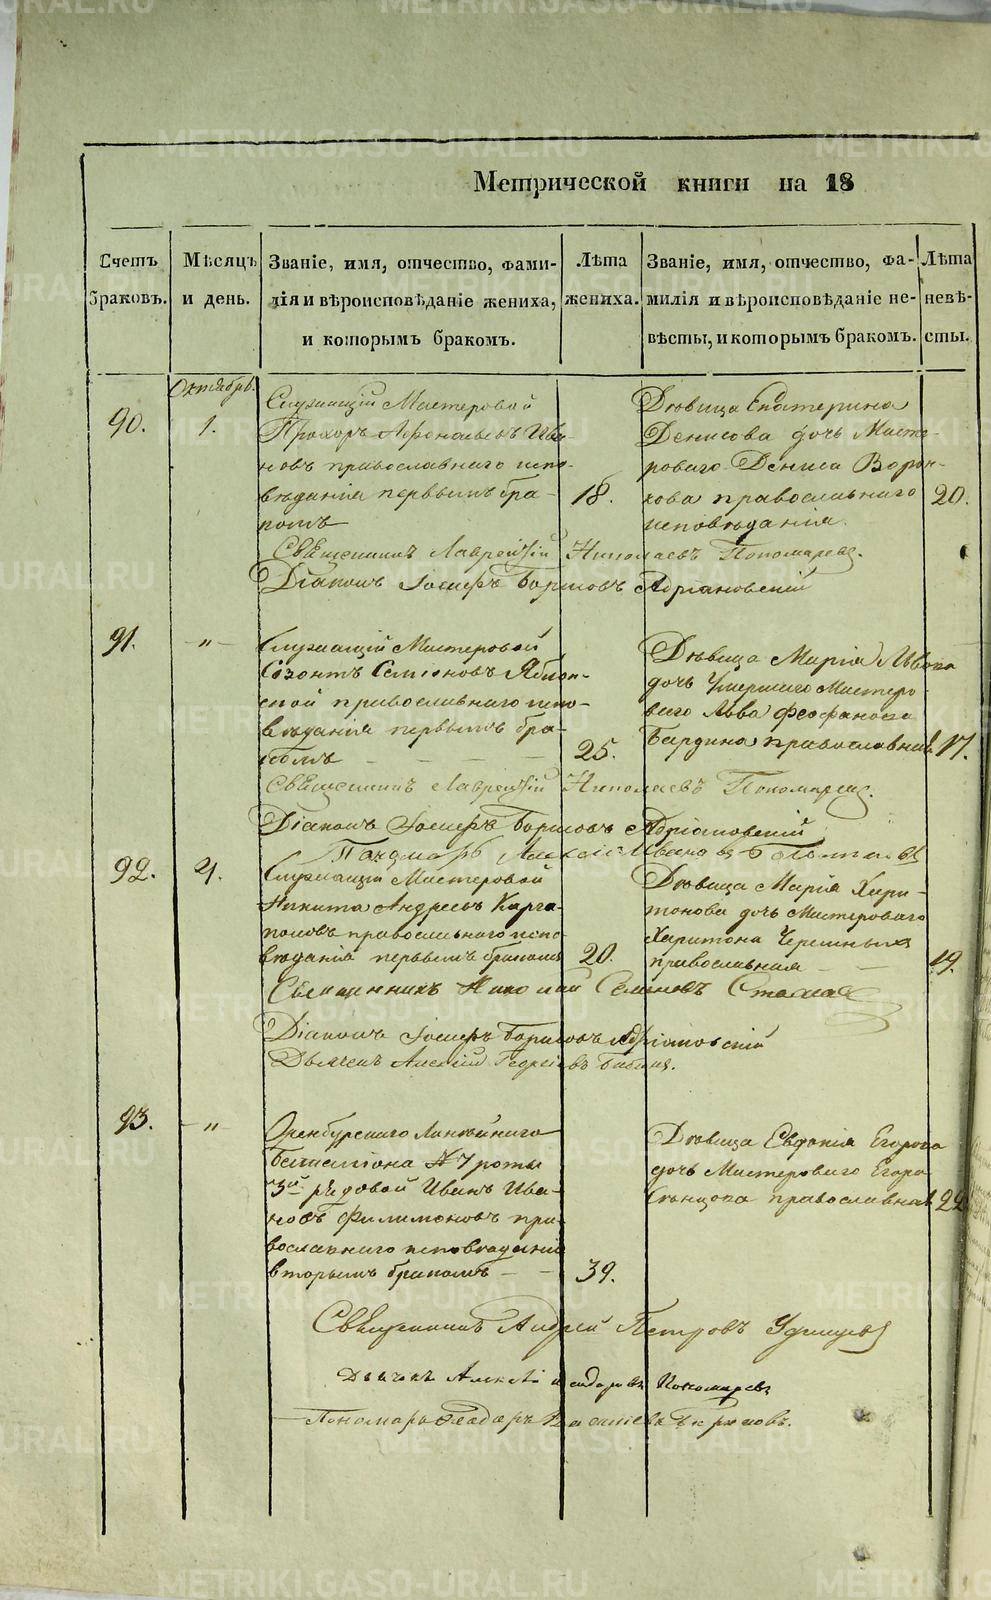 Метрической книги на 18
Счетъ браковъ.
Мѣсяцъ и день.
Званіе, имя, отчество, фами-
лія и вѣроисповѣданіе жениха,
и которымъ бракомъ.
Лѣта жениха.
Званіе, имя, отчество, фа-
милія и вѣроисповѣданіе не-
вѣсты, и которымъ бракомъ.
Лѣта невѣ-
сты.
Октябрь.
90.
1.
Служащій Мастеровой
Прохоръ Афонасьевъ Ива-
новъ православнаго испо-
вѣданія первымъ бра-
комъ
18.
Дѣвица Екатерина
Денисова дочь Масте-
роваго Дениса Ворон-
кова православнаго
исповѣданія.
20.
Священникъ Лаврентій Николаевъ Пономаревъ.
Діаконъ Іосифъ Борисовъ Адріановский
91.
-"-
Служащій Мастеровой
Созонтъ Семіоновъ Яблон-
ской православнаго испо-
вѣданія первымъ бра-
комъ
25.
Дѣвица Марія Львова
дочь Умершаго Мастеро-
ваго Льва Феофанова
Бардина православная
17.
Священникъ Лаврентій Николаевъ Пономаревъ.
Діаконъ Іосифъ Борисовъ Адріановский
Алексій Иванов
92.
4.
Служащій Мастеровой
Никита Андреевъ Карга-
половъ православнаго испо-
вѣданія первымъ бракомъ
20.
Дѣвица Марія Хари-
тонова дочь Мастероваго
Харитона
православная
19.
Священникъ Николай Семеновъ
Діаконъ Іосифъ Борисовъ Адріановскій
Дьячекъ Алексій Георгіевъ
93.
-"-
Оренбургскаго Линѣйнаго
Баталіона №7 роты
3й рядовой Иванъ Ива-
новъ Филимоновъ пра-
вославнаго исповѣданія
вторымъ бракомъ
39.
Дѣвица Евдокія Егорова
дочь Мастероваго Егора
православная
22
Священникъ Андрей Петровъ Удинцевъ
Дьячекъ Алексѣй Пономаревъ
Пономарь